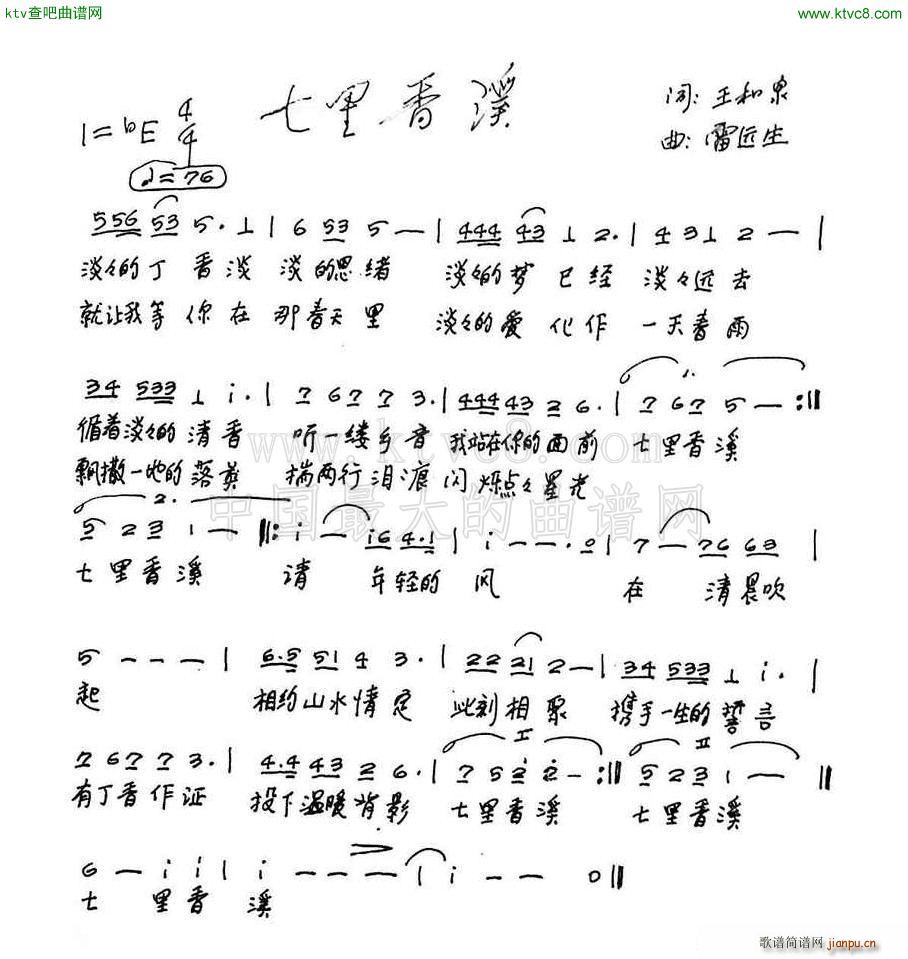 ktv查吧曲谱网 www.ktvc8.com
七里香溪
词: 王和泉
曲: 雷远生
1=bE 4/4
♩=76
556 53 5. 1 | 6 53 5 — | 444 43 1 2. | 4 3 1 2 — |
淡々的丁香淡 淡的思绪 淡々的梦已经 淡々远去
就让我等你在那春天里 淡々的爱化作一天春雨
34 533 1 i. | 7 67 7 3. | 444 43 2 6. | 7 67 5 — :||
1.
循着淡々的清香 听一缕乡音 我站在你的面前 七里香溪
飘撒一地的落英 揣两行泪痕 闪烁点々星光
www.ktvc8.com
中国最大的曲谱网
2.
5 2 3 1 — ||: i — i6 4.1 | i — — . 0 | 7 — 76 63 |
七里香溪 请 年轻的风 在 清晨吹
5 — — — | 6.5 51 4 3. | 22 21 2 — | 34 533 1 i. |
起 相约山水情定 此刻相聚 携手一生的誓言
I II
7 67 7 3. | 4.4 43 2 6. | 7 5 2 2. — :|| 5 2 3 1 — ||
有丁香作证 投下温暖背影 七里香溪 七里香溪
6 — i i | i — — — | i — — 0 ||
七 里香 溪
歌谱简谱网 jianpu.cn